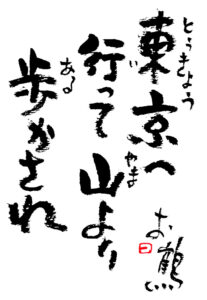 東京へ
とうきょう
行って山より
い
やま
歩かされ
ある
お鶴